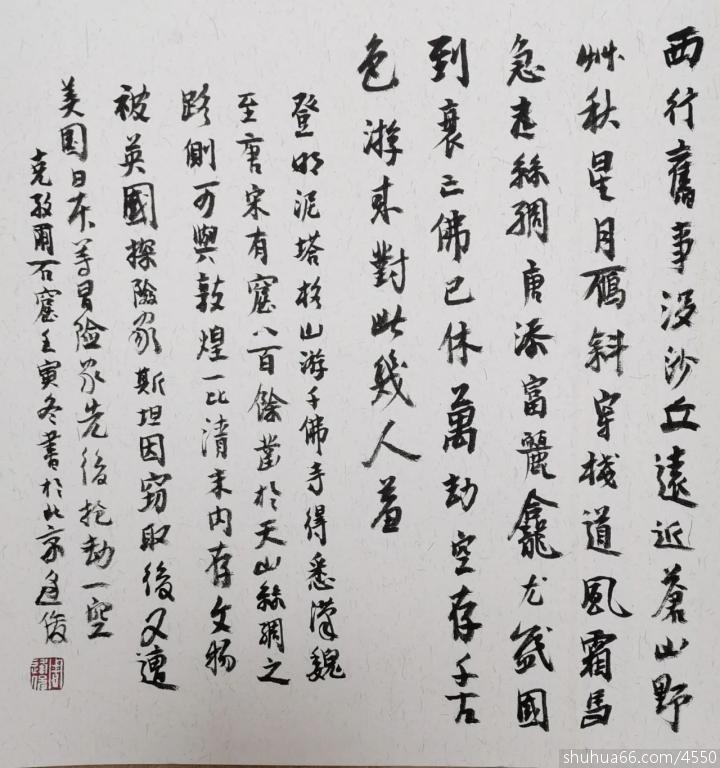 西行舊事没沙丘遠近蒼山野
艸秋星月雁斜穿棧道風霜馬
急走絲綢唐添富麗龕尤盛國
到衰亡佛已休萬劫空存千古
色游来對此幾人羞
登明泥塔格山游千佛寺得悉漢魏
至唐宋有窟八百餘鑿於天山絲綢之
路側可與敦煌一比清末内存文物
被英國探險家斯坦因窃取後又遭
美国日本等冒险家先後抢劫一空
克孜爾石窟壬寅冬書於北京俊
shuhua66.com/4550